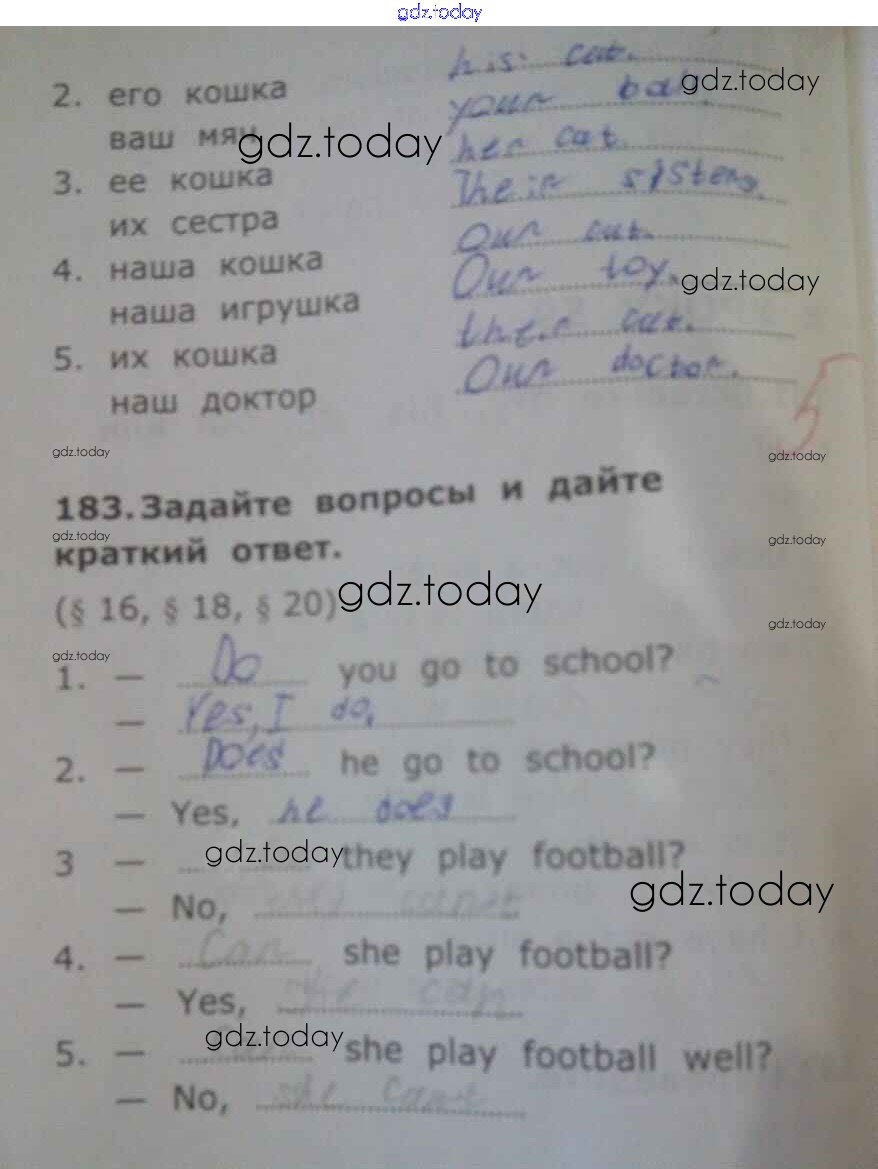 gdz.today
2. его кошка his cat.
ваш мяч your ball. gdz.today
gdz.today
3. ее кошка her cat.
их сестра Their sisters.
4. наша кошка Our cat.
наша игрушка Our toy. gdz.today
5. их кошка their cat.
наш доктор Our doctor.
5
gdz.today gdz.today
183. Задайте вопросы и дайте
gdz.today gdz.today
краткий ответ.
(§ 16, § 18, § 20) gdz.today
gdz.today
gdz.today
1. — Do you go to school?
— Yes, I do.
2. — Does he go to school?
— Yes, he does
3 — gdz.today they play football?
gdz.today
— No, they can't
4. — Can she play football?
— Yes, she can
5. — gdz.today she play football well?
— No, she can't